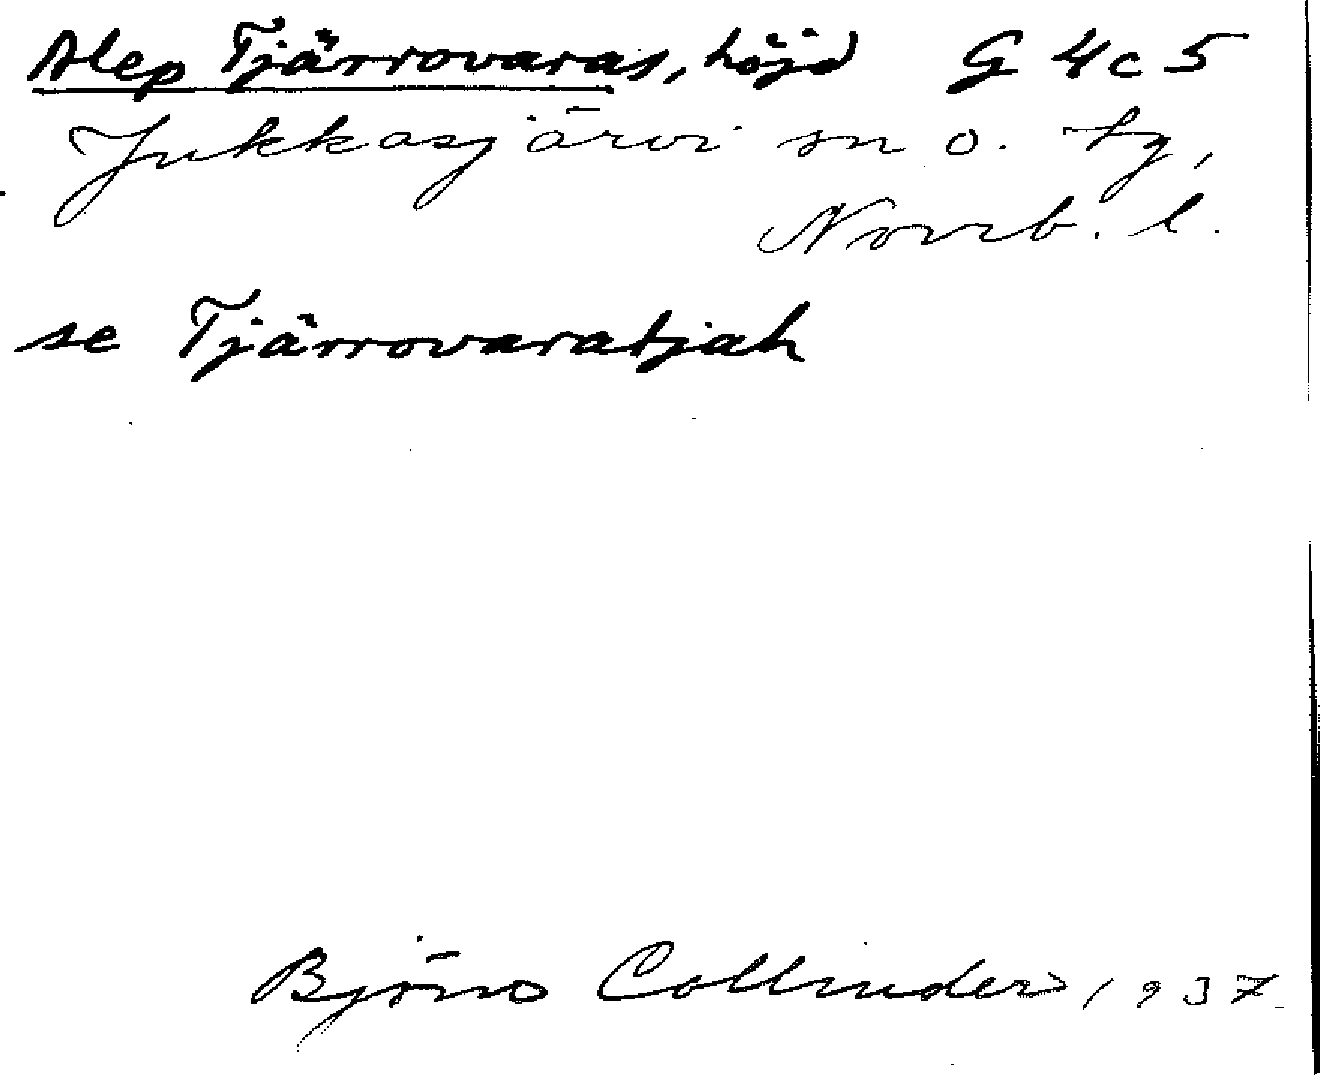 Alep Tjärrovaras, höjd G 4c5
Jukkasjärvi sn o. tg,
Norrb. l.
se Tjärrovaratjah
Björn Collinder 1937